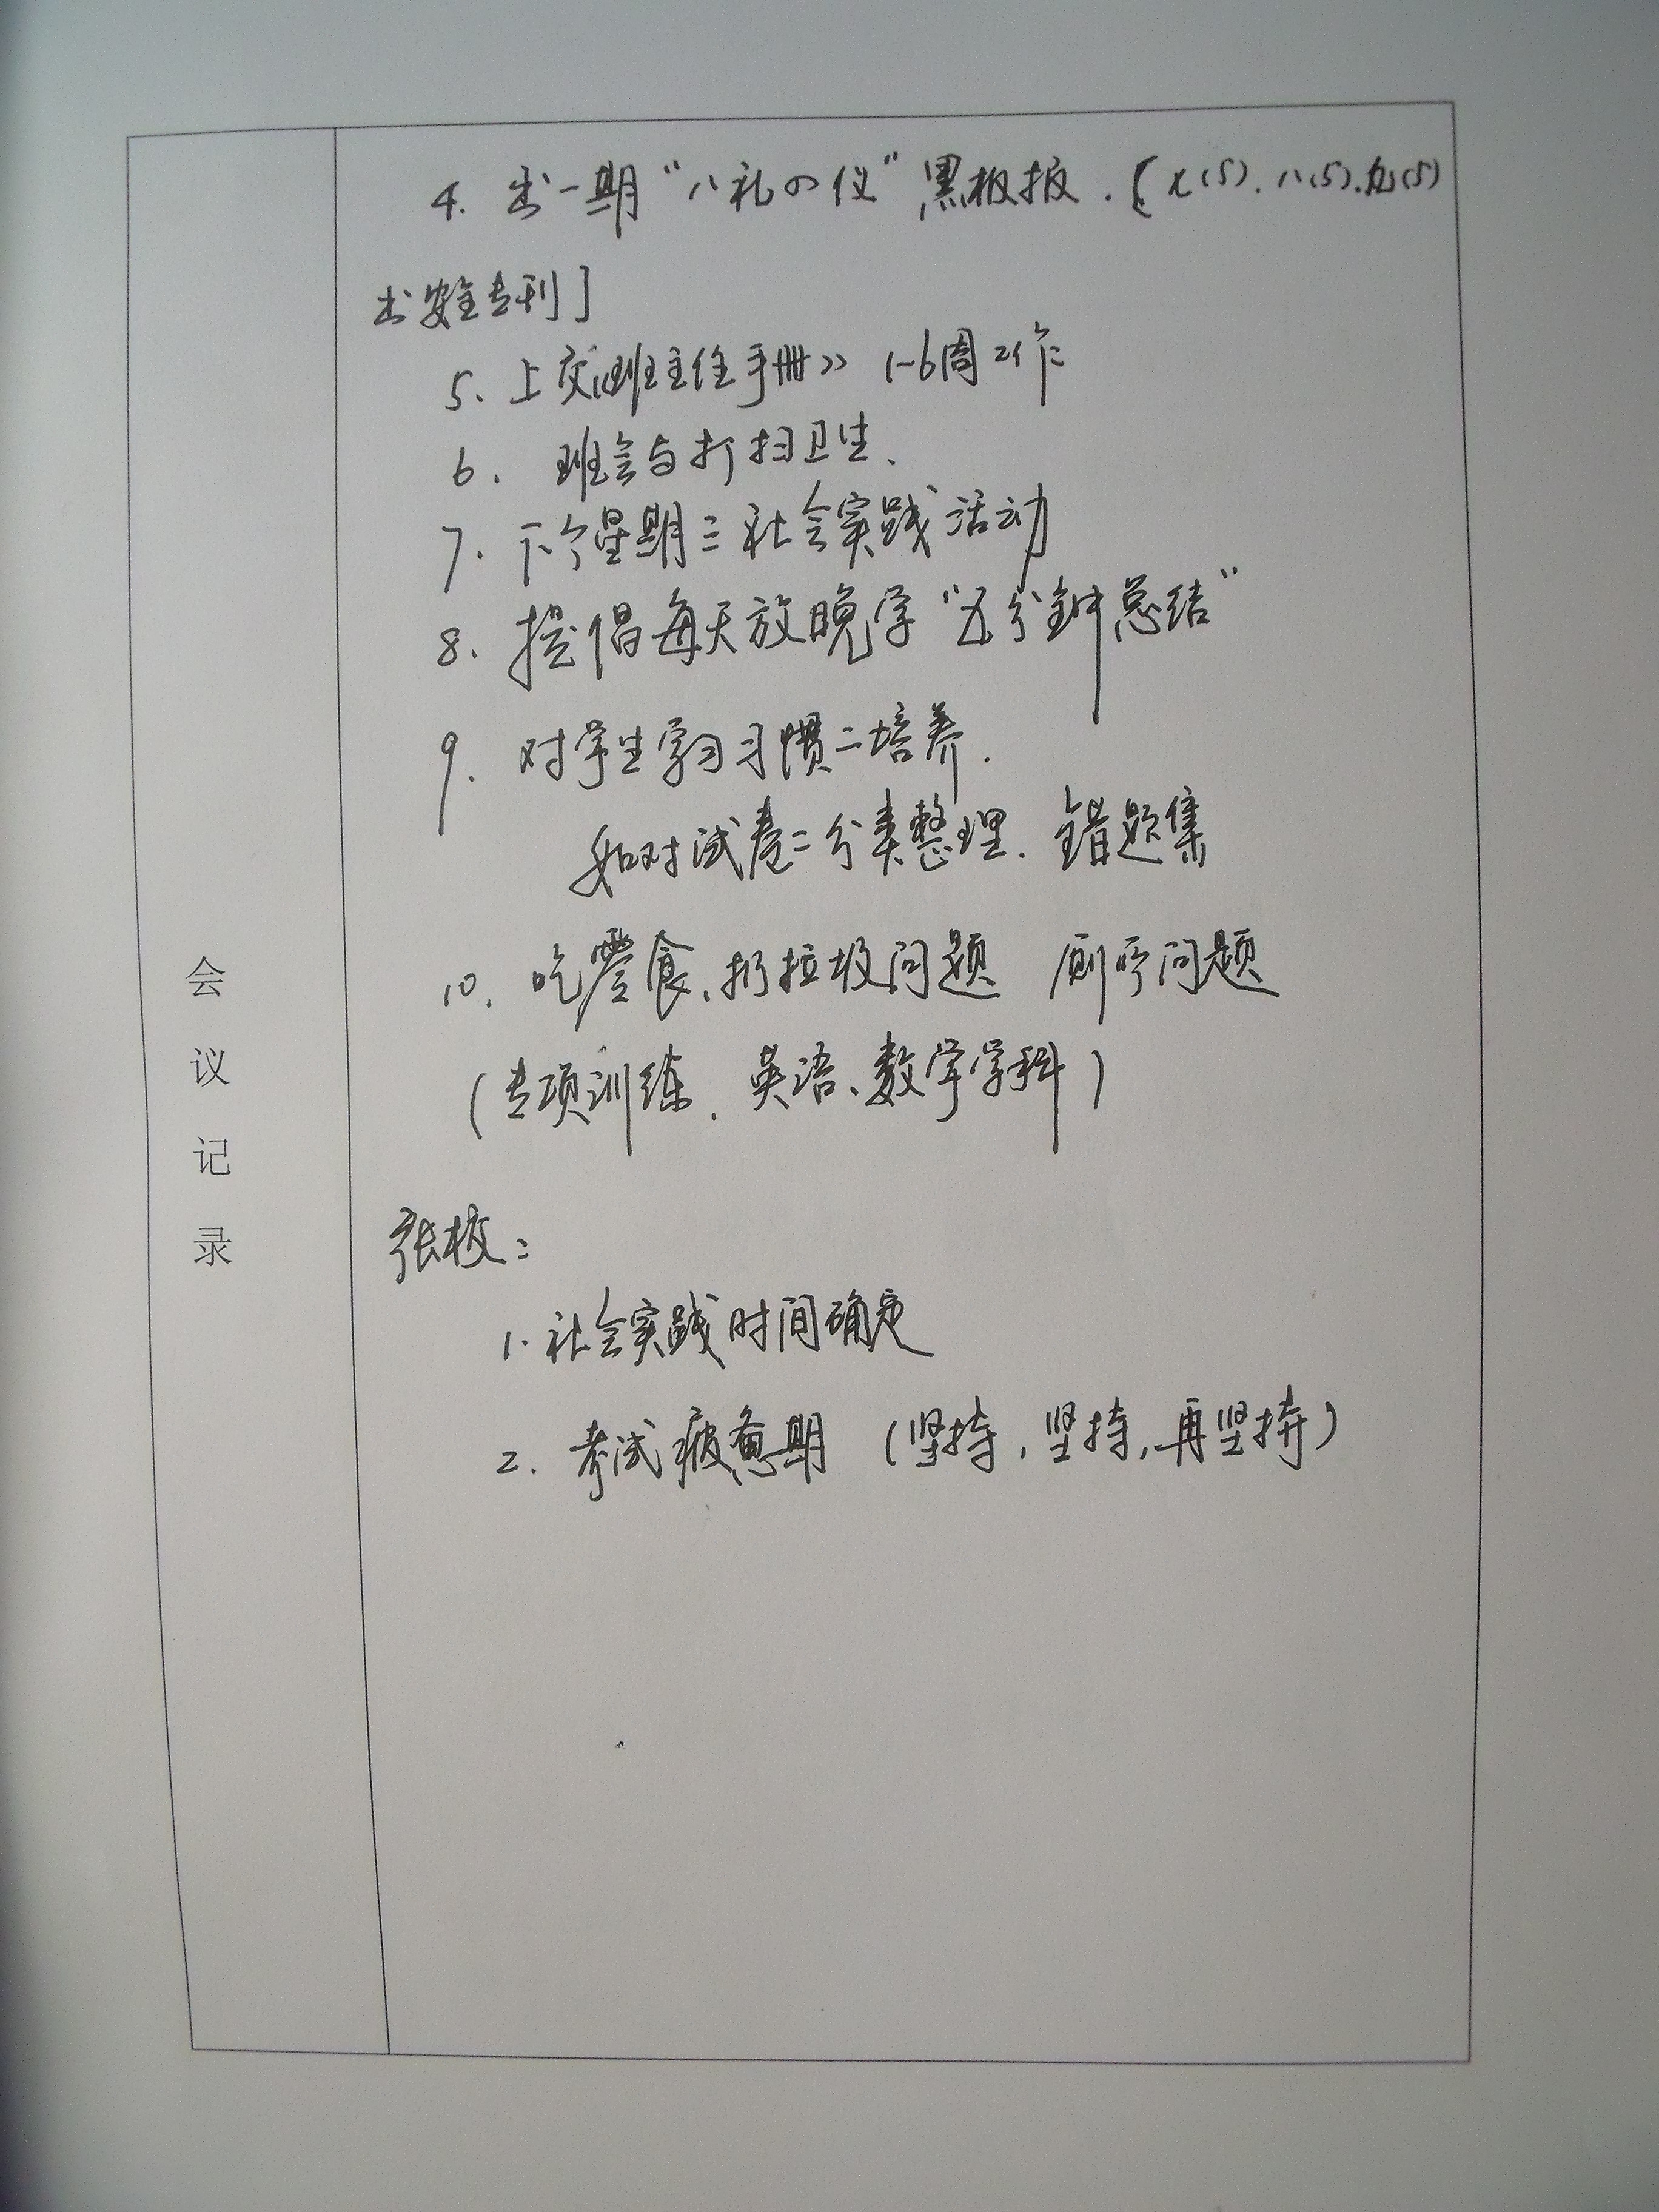 4. 出一期“八礼四仪”黑板报.[七(5).八(5).九(5)
出安全专刊]
5. 上交《班主任手册》 1-6周工作
6. 班会与打扫卫生、
7. 下个星期三社会实践活动
8. 提倡每天放晚学“五分钟总结”
9. 对学生学习习惯二培养.
如对试卷二分类整理. 错题集
10. 吃零食、扔垃圾问题 厕所问题
(专项训练. 英语、数学学科)
张校:
1. 社会实践时间确定
2. 考试疲惫期 (坚持,坚持,再坚持)
会
议
记
录